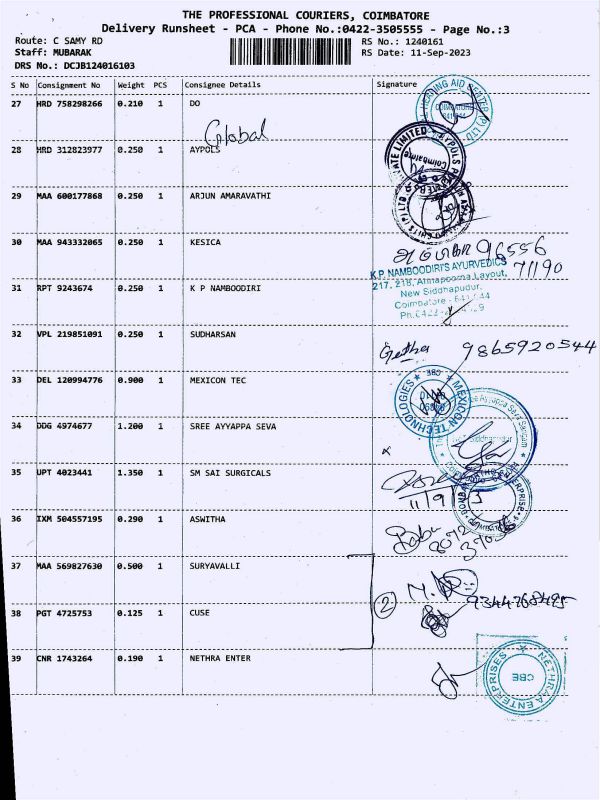 THE PROFESSIONAL COURIERS, COIMBATORE
Delivery Runsheet - PCA - Phone No.:0422-3505555 - Page No.:3
Route: C SAMY RD RS No.: 1240161
Staff: MUBARAK RS Date: 11-Sep-2023
DRS No.: DCJB124016103
S No Consignment No Weight PCS Consignee Details Signature
27 HRD 758298266 0.210 1 DO
Global
28 HRD 312823977 0.250 1 AYPOLS
29 MAA 600177868 0.250 1 ARJUN AMARAVATHI
30 MAA 943332065 0.250 1 KESICA
96556
71190
31 RPT 9243674 0.250 1 K P NAMBOODIRI
K.P. NAMBOODIRI'S AYURVEDICS
217, 218, Annapoorna Layout,
New Siddhapudur,
Coimbatore - 641 044
32 VPL 219851091 0.250 1 SUDHARSAN
Geetha 9865920544
33 DEL 120994776 0.900 1 MEXICON TEC
MEXICON TECHNOLOGIES CBE
34 DDG 4974677 1.200 1 SREE AYYAPPA SEVA
35 UPT 4023441 1.350 1 SM SAI SURGICALS
11/9/
36 IXM 504557195 0.290 1 ASWITHA
Babu
37 MAA 569827630 0.500 1 SURYAVALLI
2
9344768495
38 PGT 4725753 0.125 1 CUSE
39 CNR 1743264 0.190 1 NETHRA ENTER
NETHRAA ENTERPRISES
CBE